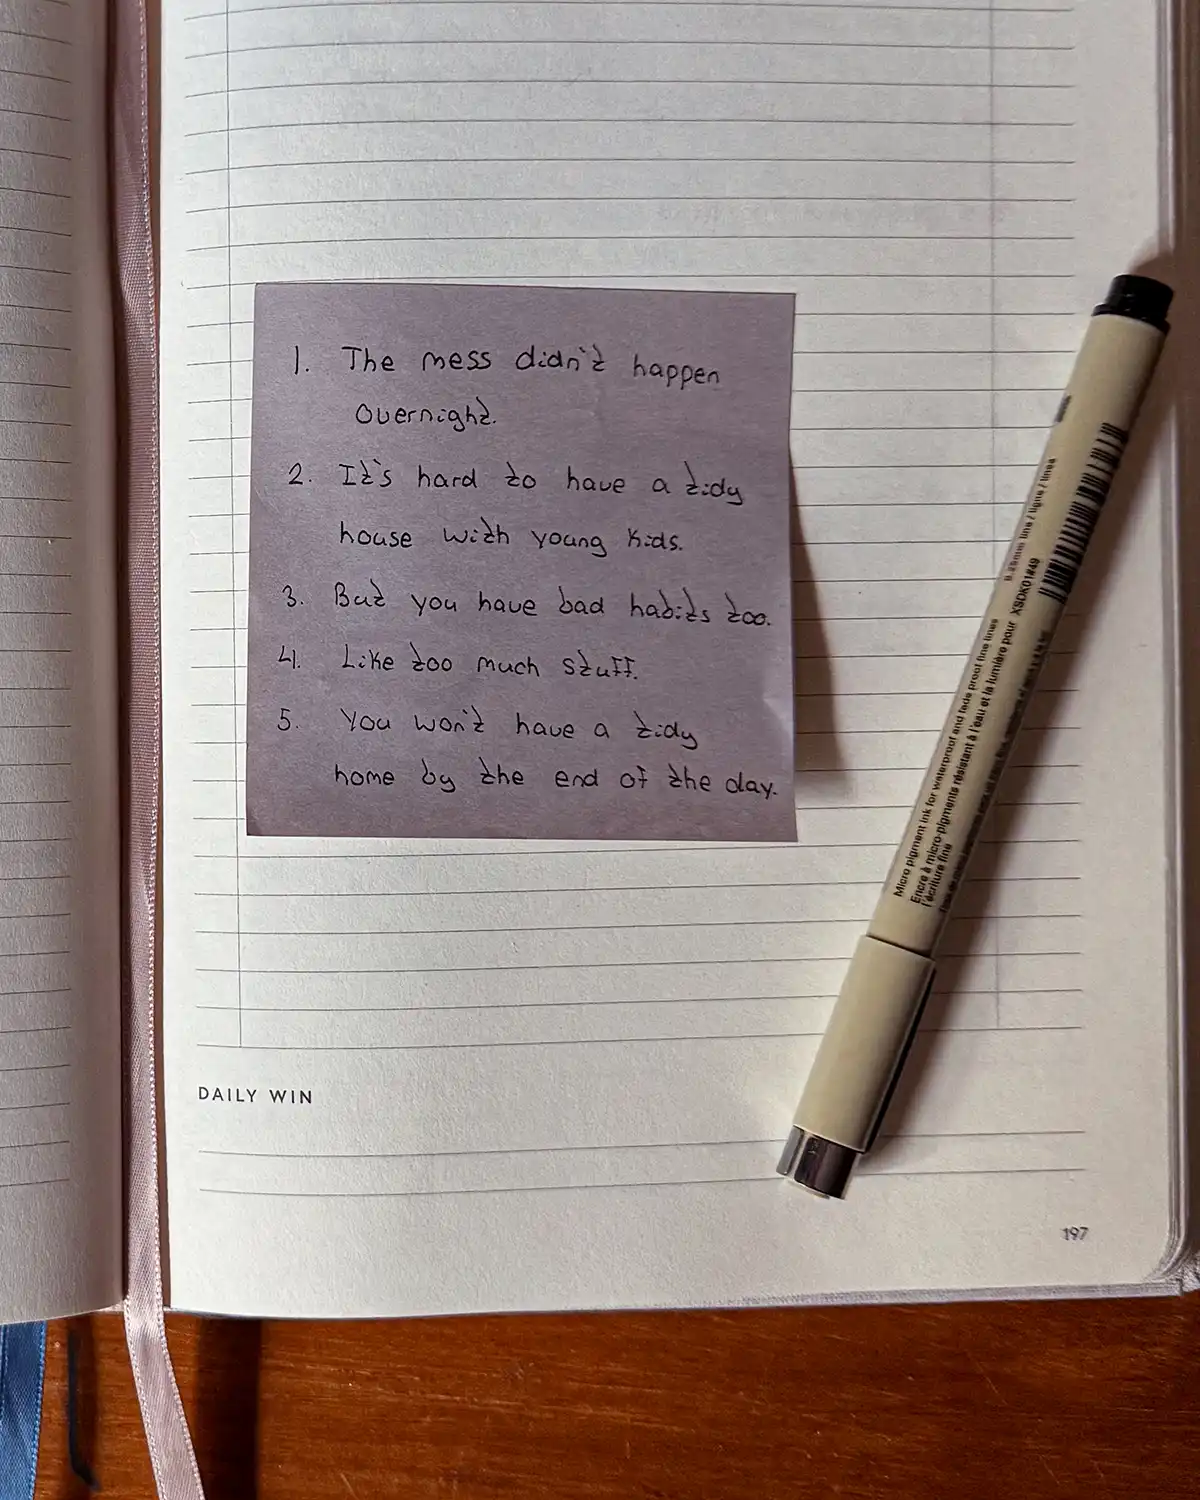 1. The mess didn't happen
overnight.
2. It's hard to have a tidy
house with young kids.
3. But you have bad habits too.
4. Like too much stuff.
5. You won't have a tidy
home by the end of the day.
DAILY WIN
197
Micro pigment ink for waterproof and fade proof fine lines
Encre à micro-pigments résistant à l'eau et la lumière pour
l'écriture fine
XSDK01#49
line / ligne / línea